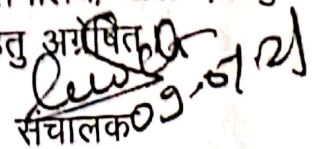 तु अग्रेषित
संचालक 09.07.21